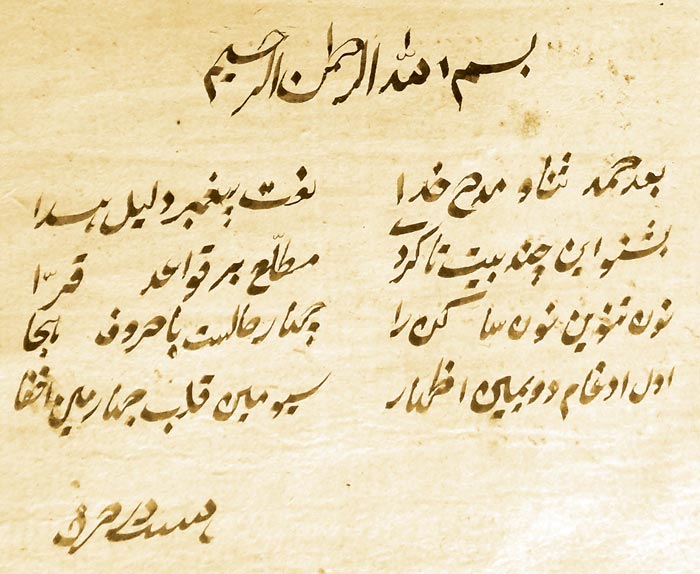 بسم الله الرحمن الرحیم
بعد حمد ثنا و مدح خدا نعت پیغمبر دلیل هدا
بشنو این چند بیت تا گردے مطلّع بر قواعد قرّا
نون تنوین نون ساکن را چهار حالست با حروف هجا
اول ادغام دویمین اظهار سیومین قلب چهارمین اخفا
هست در حرف